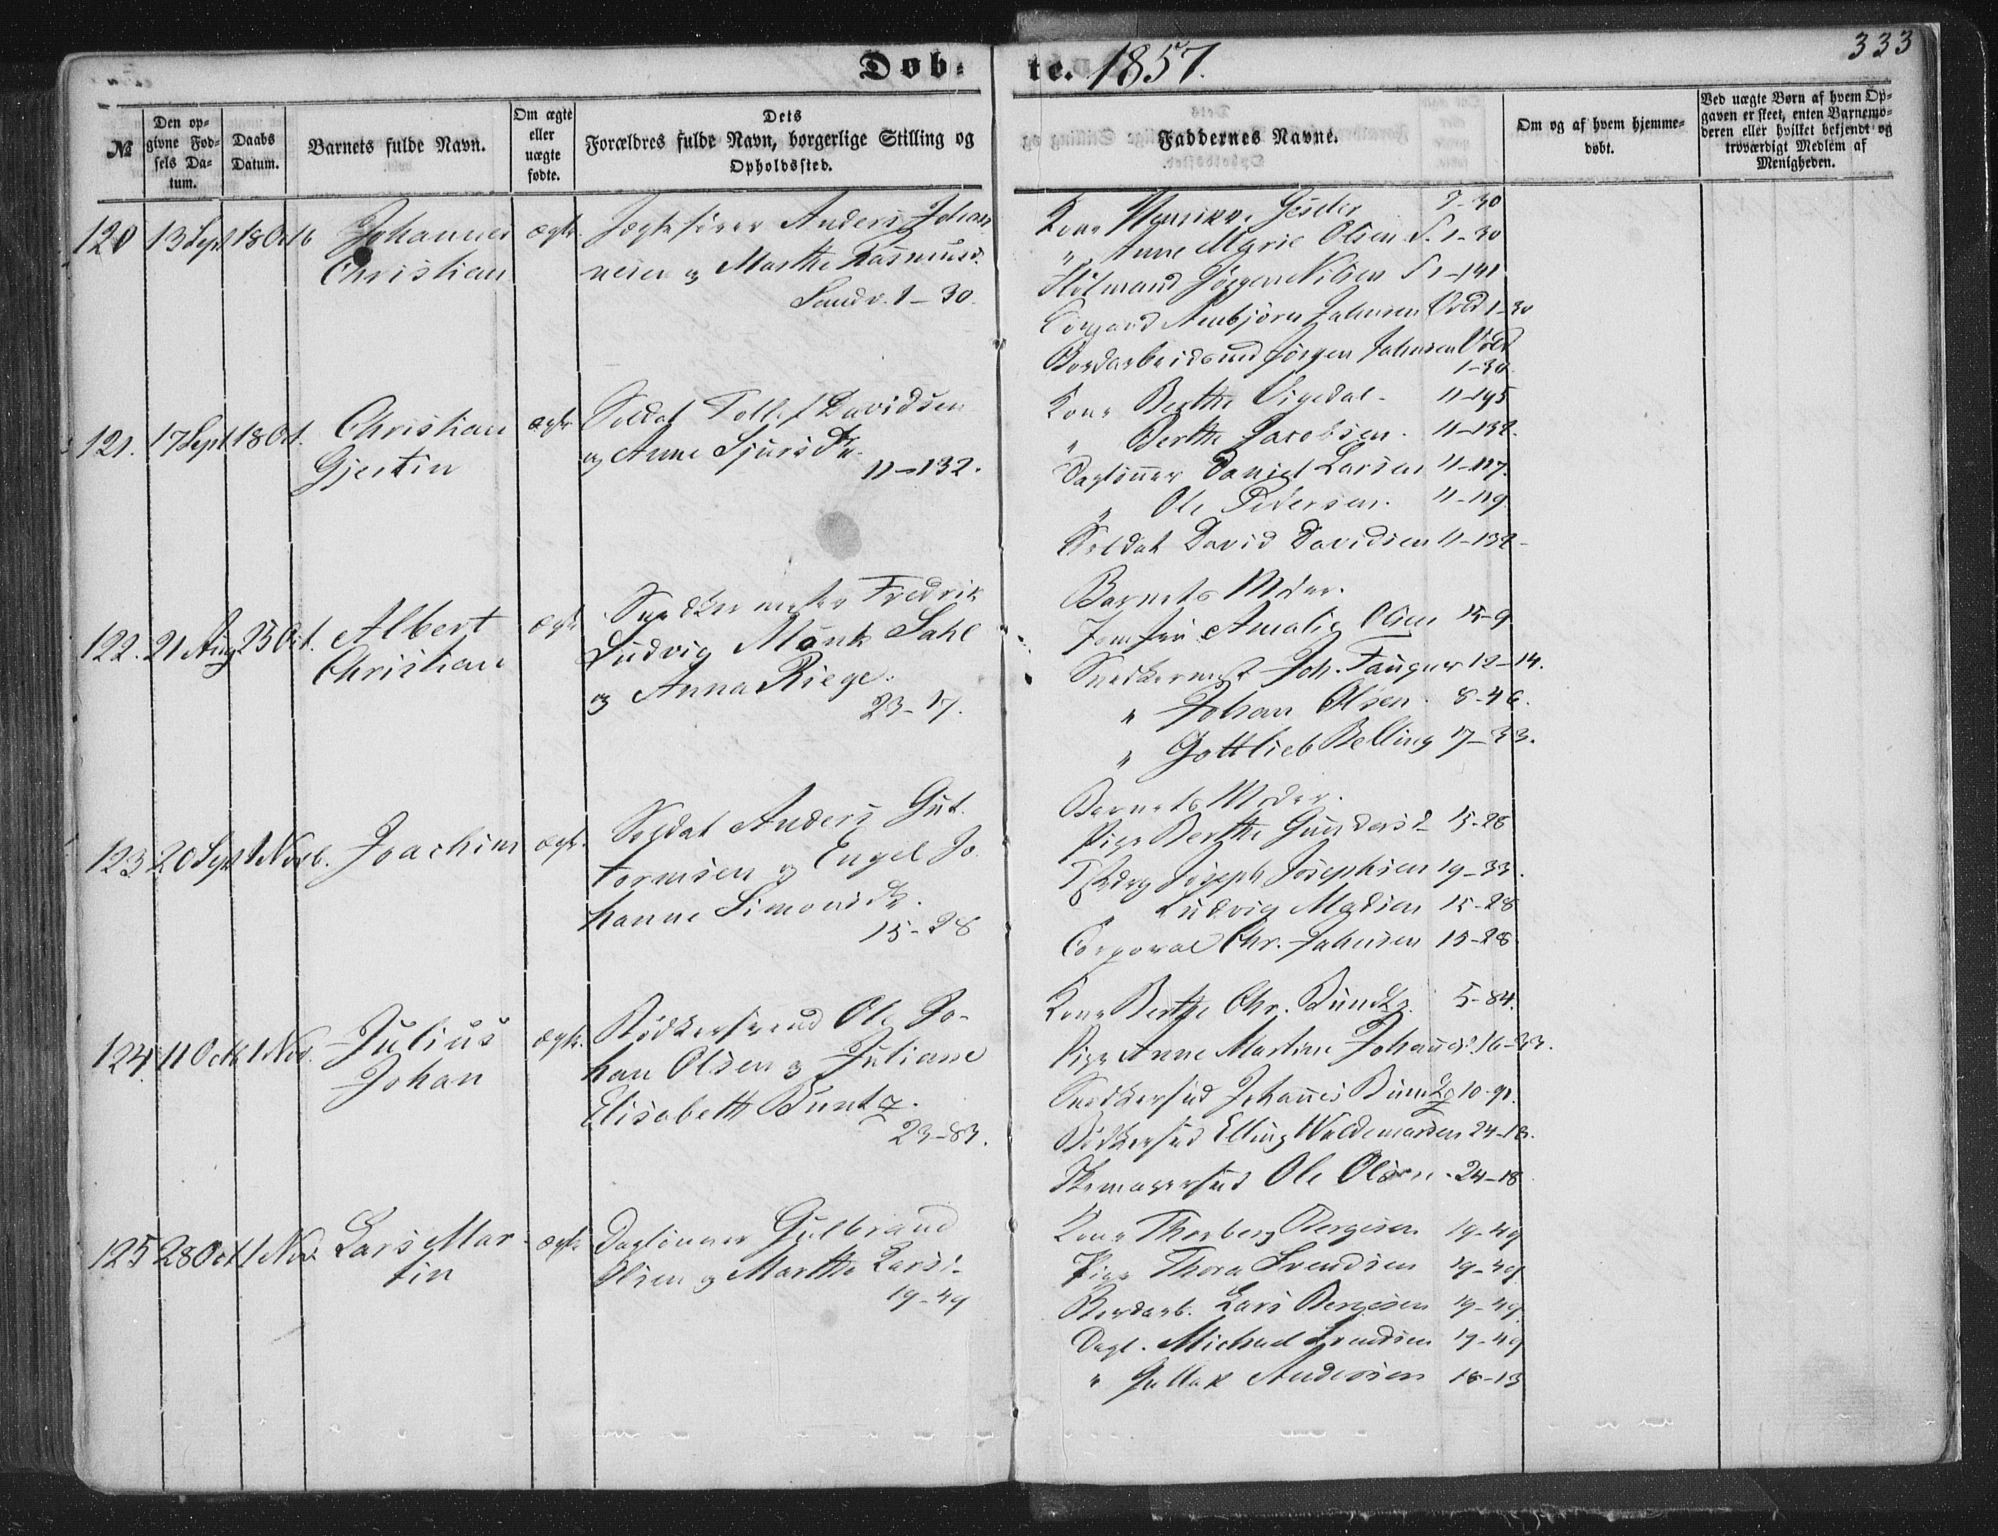 333
Døb- te. 1857.
№
Den opgivne Fødsels Datum.
Daabs Datum.
Barnets fulde Navn.
Om ægte eller uægte fødte.
Dets Forældres fulde Navn, borgerlige Stilling og Opholdssted.
Faddernes Navne.
Om og af hvem hjemmedøbt.
Ved uægte Børn af hvem Opgaven er skeet, enten Barnemoderen eller hvilket bekjendt og troværdigt Medlem af Menigheden.
120 13 Sept 18 Octb Johannes ægte
Christian
Anders Johan
nesen og Marthe Rasmusd.
Sandv. 1-30.
Kone
" Anne Marie Olsen S. 1-30
Jørgen Nilsen S 1-141
Johnsen Vold 1-30
Jørgen Johnsen Vold
1-30.
121. 17 Sept 18 Oct. Christian ægte
Gjertin
Soldat Tollef Davidsen
og Anne Sjursdr.
11-132.
Kone Berthe Sigedal - 11-195
" Berthe Jacobsen. 11-132.
Dagløner Daniel Larsen 11-117.
" Ole Pedersen. 11-119
Soldat David Davidsen 11-132-
122. 21 Aug 25 Oct. Albert ægte
Christian
Snedkermester Fredrik
Ludvig Mønk Dahl
og Anna Riege.
23-17.
Barnets Moder.
Jomfru Amalie Olsen 15-9
Snedkermst Joh. Fauger 12-14.
" Johan Olsen. 8-46.
" Gottlieb Belling 17-33.
123 20 Sept 1 Novb. Joachim ægte.
Soldat Anders Gut
tormsen og Engel Jo
hanne Simonsdr.
15-28
Barnets Moder.
Pige Berthe Gundersd 15-28
Joseph Josephsen 19-33.
Ludvig Madsen 15-28
Corporal Chr. Johnsen 15-28.
124. 11 Octb 1 Nov. Julius ægte.
Johan
Bødkersvend Ole Jo-
han Olsen og Juliane
Elisabeth Buntz.
23-83.
Kone Berthe Chr. Buntz. 5-84.
Pige Anne Martine Johannesd. 16-33.
Snedkersvd Johannes Buntz 10-91.
Bødkersvd Elling Woldemarsen 24-18.
Skomagersvd Ole Olsen. 24-18
125 28 Oct 1 Nov. Lars Mar- ægte
tin
Dagløner Gulbrand
Olsen og Marthe Larsd.
19-49
Kone Thorberg Bergesen 19-49
Pige Thora Svendsen 19-49
Bordarb. Lars Bergesen 19-49.
Dagl. Michael Svendsen 19-49
" Gullak Andersen 18-13